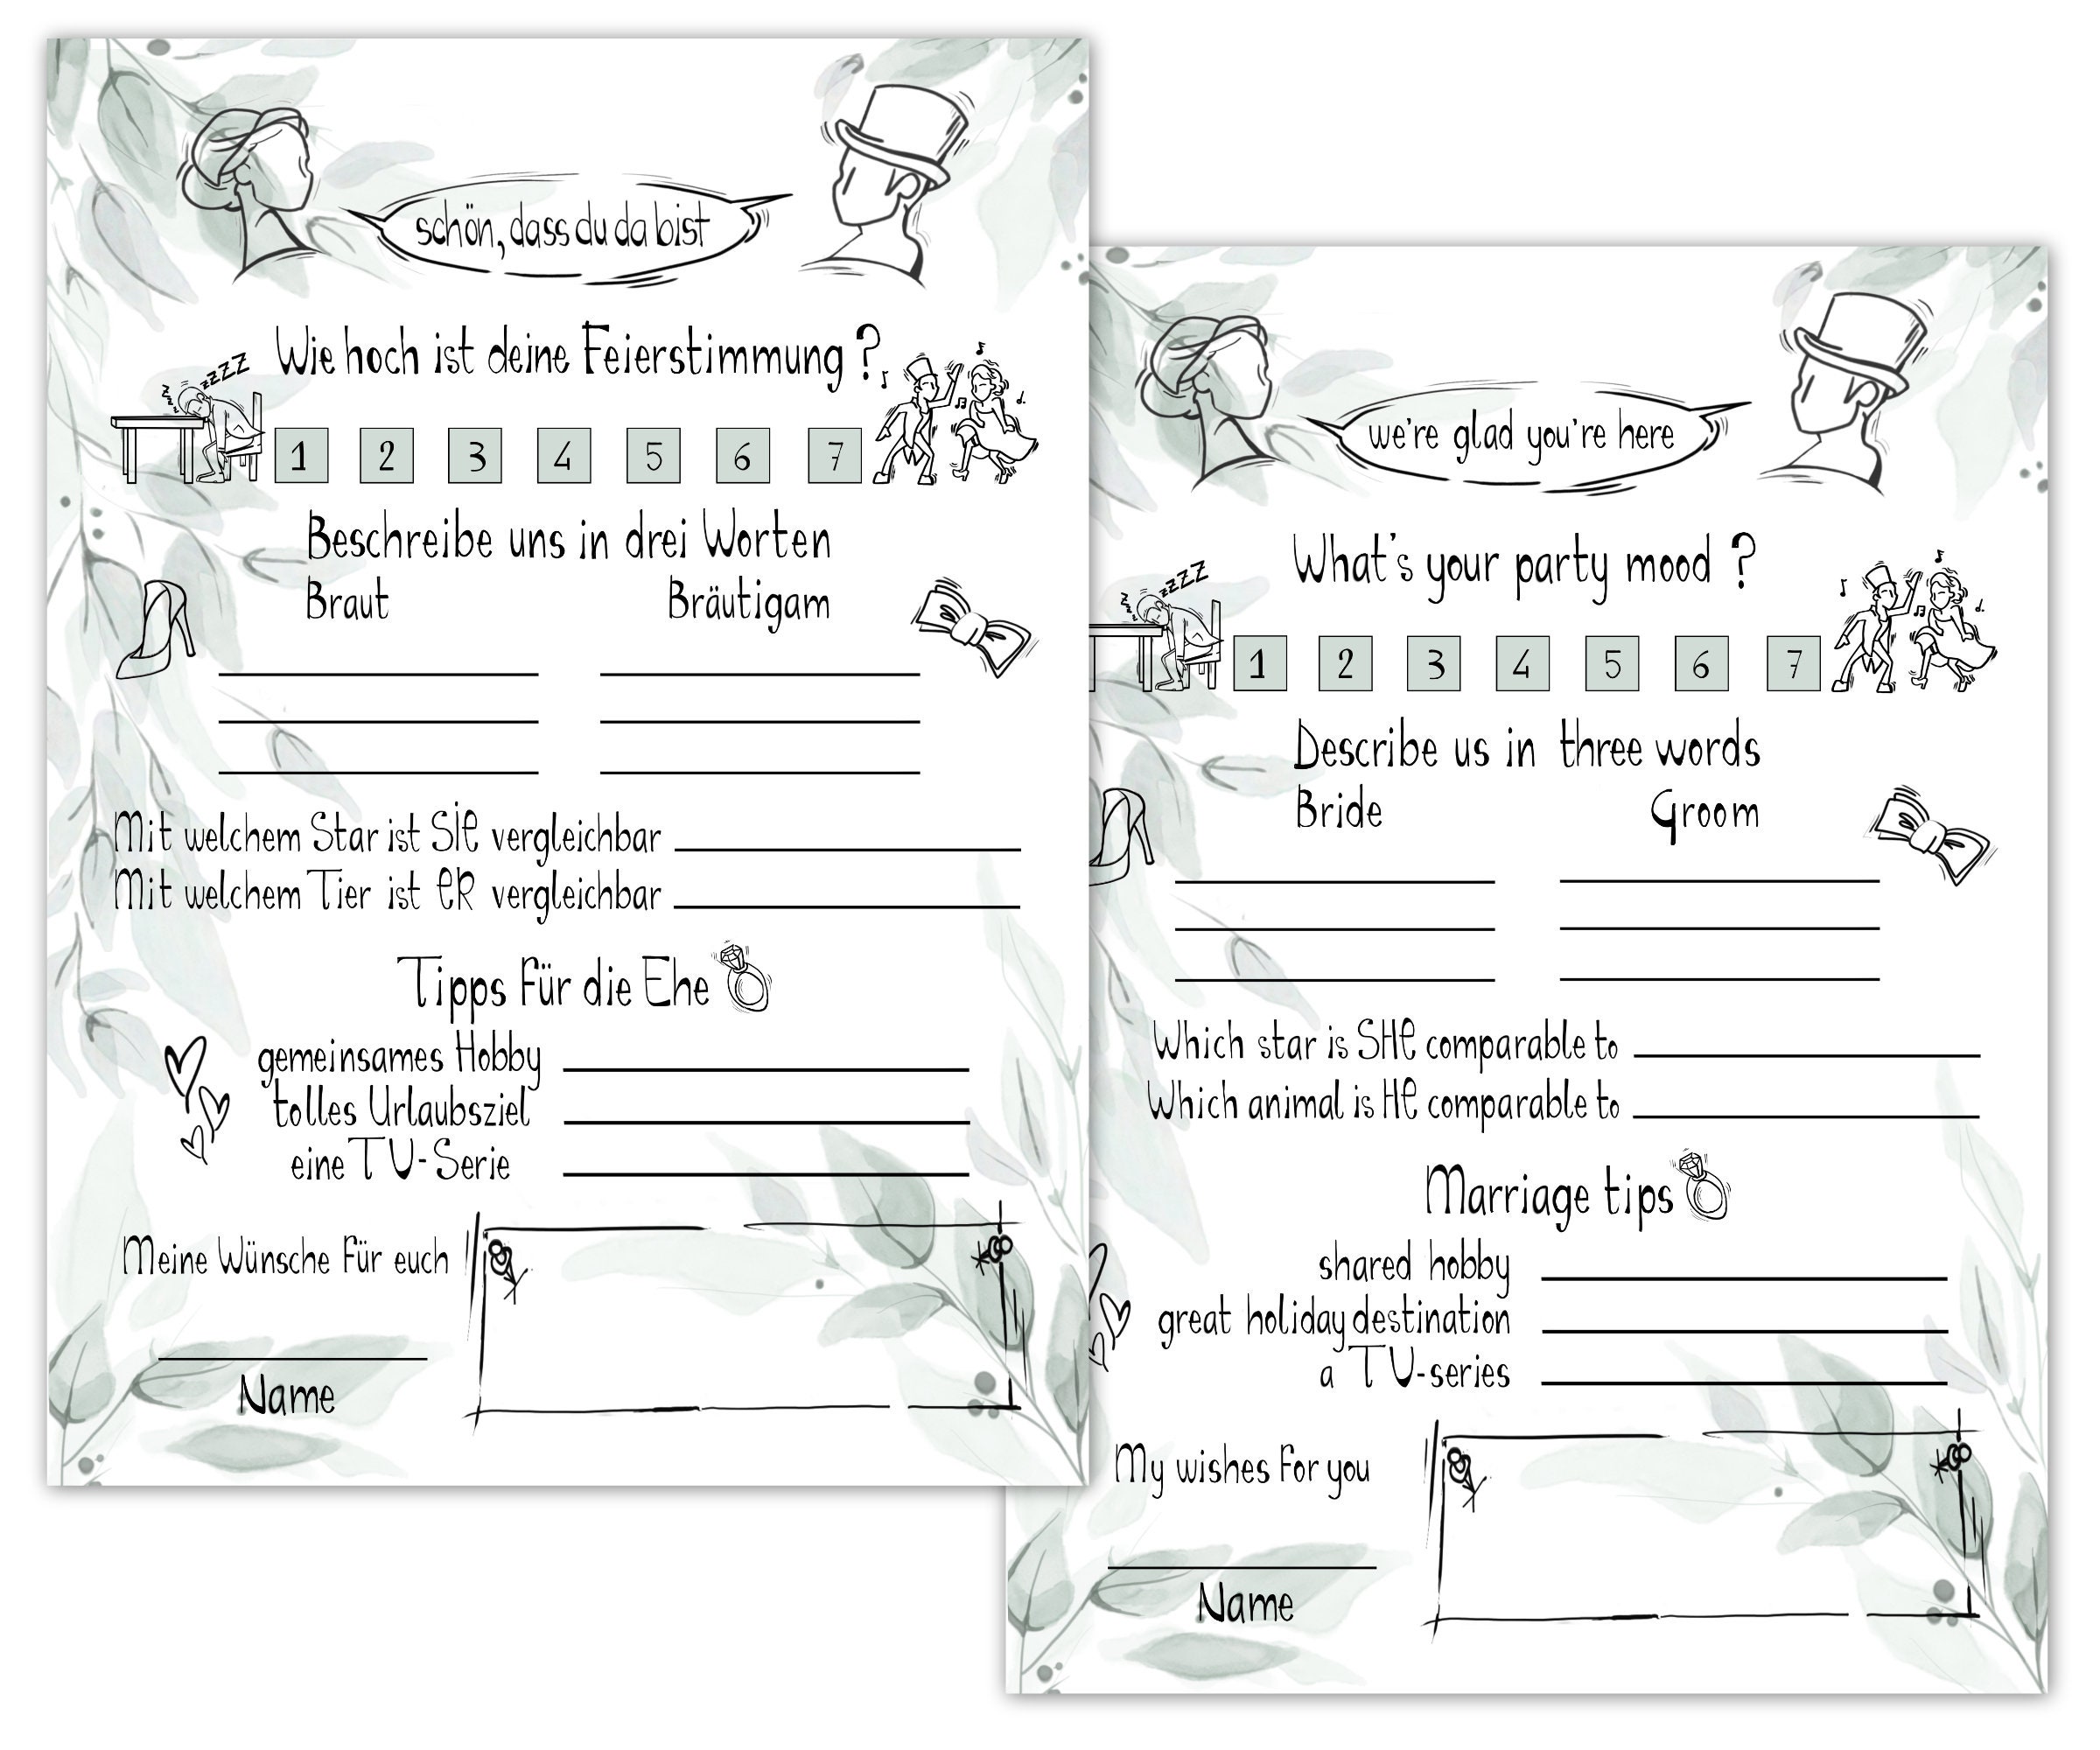 schön, dass du da bist
Wie hoch ist deine Feierstimmung ?
zZZZ
1 2 3 4 5 6 7
Beschreibe uns in drei Worten
Braut Bräutigam
Mit welchem Star ist SiE vergleichbar
Mit welchem Tier ist ER vergleichbar
Tipps für die Ehe
gemeinsames Hobby
tolles Urlaubsziel
eine TV-Serie
Meine Wünsche für euch
Name
we're glad you're here
What's your party mood ?
zZZZ
1 2 3 4 5 6 7
Describe us in three words
Bride Groom
Which star is SHE comparable to
Which animal is HE comparable to
Marriage tips
shared hobby
great holiday destination
a TV-series
My wishes for you
Name